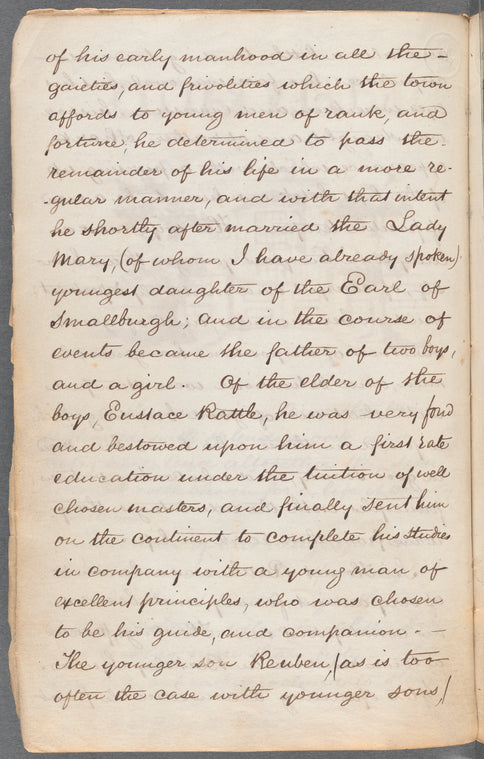 of his early manhood in all the -
gaieties, and frivolities which the town
affords to young men of rank, and
fortune, he determined to pass the
remainder of his life in a more re-
-gular manner, and with that intent
he shortly after married the Lady
Mary, (of whom I have already spoken)
youngest daughter of the Earl of
Smallburgh; and in the course of
events became the father of two boys,
and a girl. Of the elder of the
boys, Eustace Rattle, he was very fond
and bestowed upon him a first rate
education under the tuition of well
chosen masters, and finally sent him
on the continent to complete his studies
in company with a young man of
excellent principles, who was chosen
to be his guide, and companion. -
The younger son Reuben, (as is too
often the case with younger sons,)